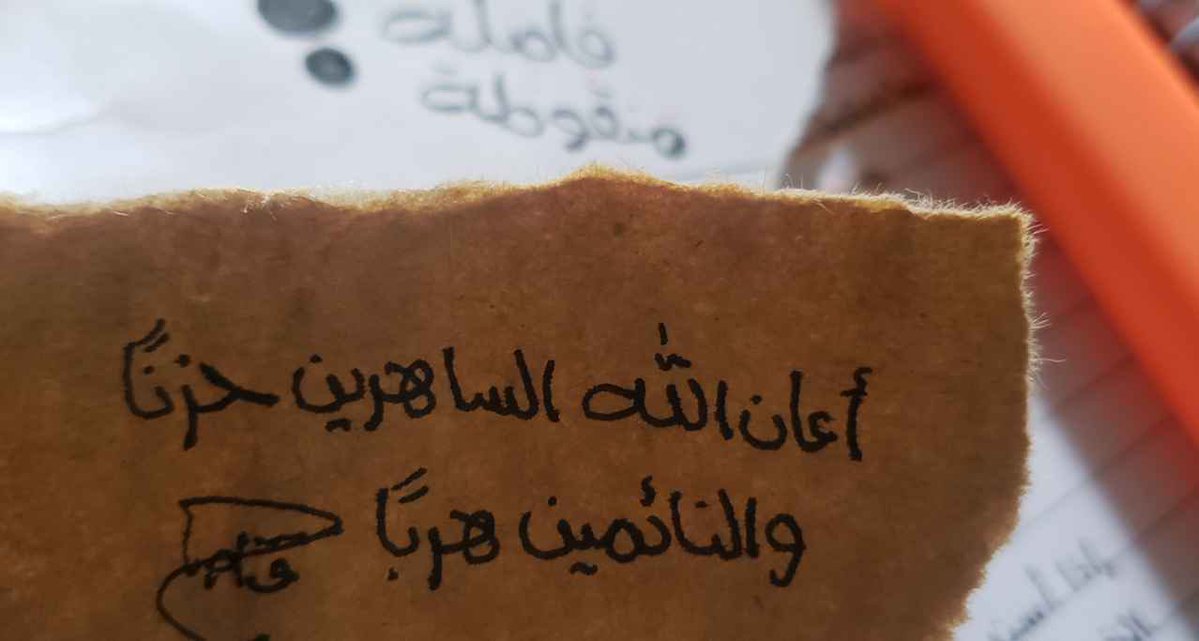 فاصلة
منقوطة
أعان الله الساهرين حزنًا
والنائمين هربًا